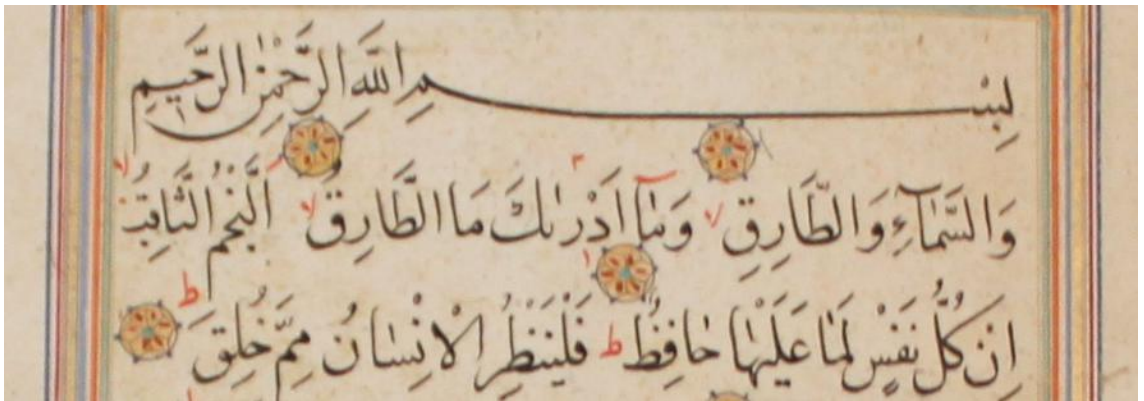 بِسْمِ اللَّهِ الرَّحْمٰنِ الرَّحِيمِ
وَالسَّمَآءِ وَالطَّارِقِ ۙ وَمَآ اَدْرٰىكَ مَا الطَّارِقُ ۙ اَلنَّجْمُ الثَّاقِبُ ۙ
اِنْ كُلُّ نَفْسٍ لَمَّا عَلَيْهَا حَافِظٌ ط فَلْيَنْظُرِ الْاِنْسَانُ مِمَّ خُلِقَ ط